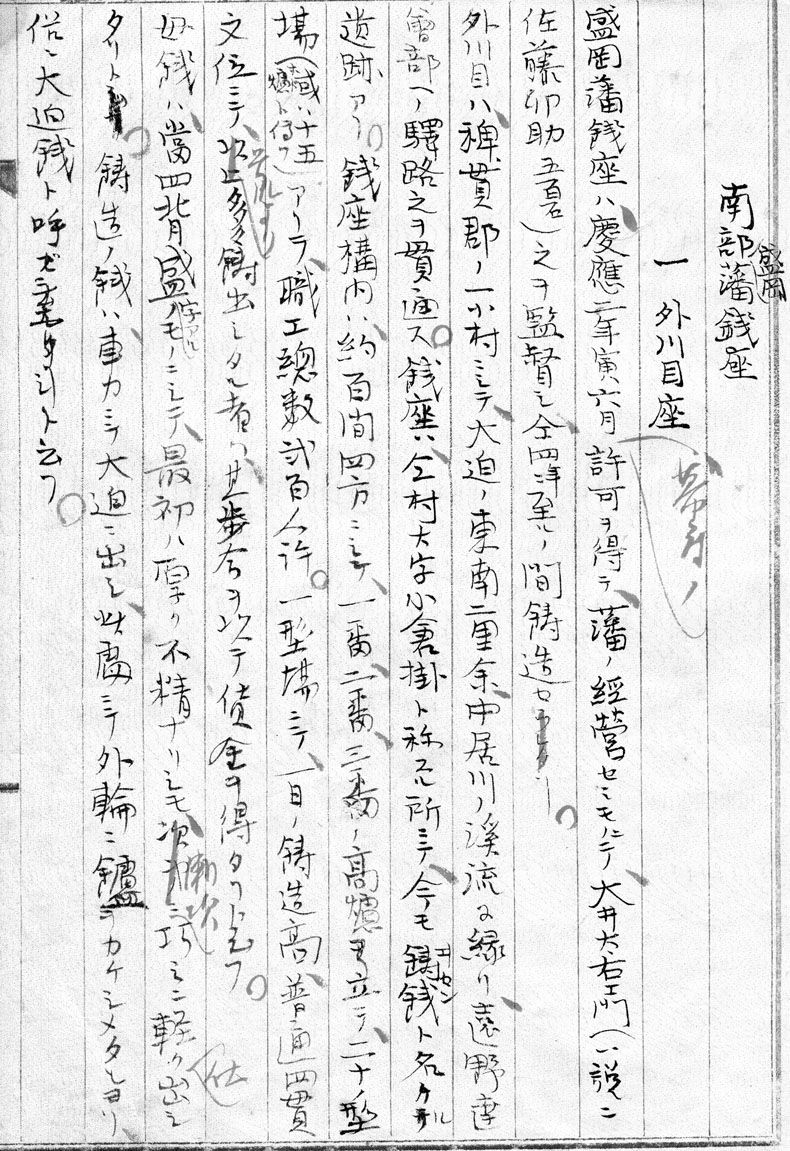 南部藩銭座
盛岡
一 外川目座
盛岡藩銭座ハ慶應二年寅六月許可ヲ得テ藩ノ經営セシモノニテ大井大右エ門(一説ニ
佐藤卯助五百石)之ヲ監督シ仝四年ニ至ルノ間鋳造セラレタリ。
外川目ハ稗貫郡ノ一小村ニシテ大迫ノ東南二里余中居川ノ溪流ニ縁リ遠野達
曾部ヘノ驛路之ヲ貫通ス。銭座ハ仝村大字小倉掛ト称スル所ニテ今モ鋳銭ト名ケタル
遺跡アリ。銭座構内ハ約百間四方ニシテ、一番二番三番ノ高爐ヲ立テ二十ノ型
場(或ハ十五ト傳フ)アリテ、職工總数弐百人許。一型場ニテ、一日ノ鋳造高普通四貫
文位ニテ以上多ク鋳出シタル者ハ其歩合ヲ以テ賃金ヲ得タリト云フ。
母銭ハ當四背盛字ノモノニシテ最初ハ厚ク不精ナリシモ漸次巧ミニ軽ク出シ
タリト。鋳造ノ銭ハ車力ニテ大迫ニ出シ此處ニテ外輪ニ鑢ヲカケシメタルヨリ
俗ニ大迫銭ト呼ビ来タリシト云フ。